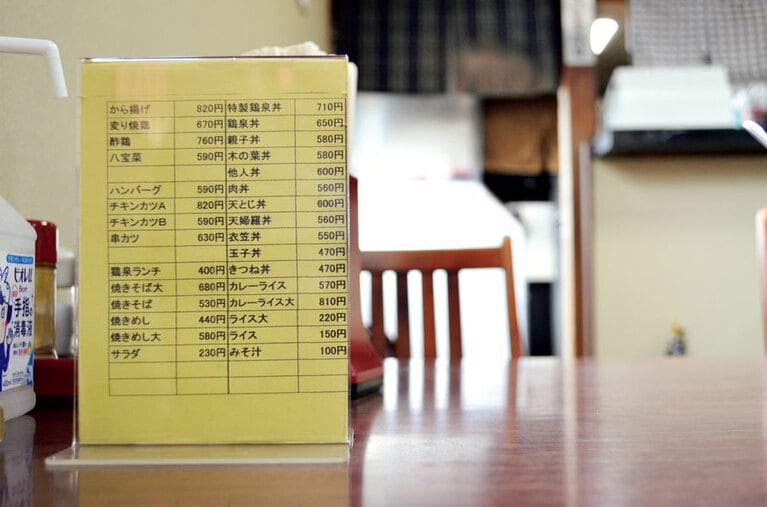 から揚げ 820円 特製鶏泉丼 710円
変り焼鶏 670円 鶏泉丼 650円
酢鶏 760円 親子丼 580円
八宝菜 590円 木の葉丼 580円
他人丼 600円
ハンバーグ 590円 肉丼 560円
チキンカツA 820円 天とじ丼 600円
チキンカツB 590円 天婦羅丼 560円
串カツ 630円 衣笠丼 550円
玉子丼 470円
鶏泉ランチ 400円 きつね丼 470円
焼きそば大 680円 カレーライス 570円
焼きそば 530円 カレーライス大 810円
焼きめし 440円 ライス大 220円
焼きめし大 580円 ライス 150円
サラダ 230円 みそ汁 100円
ビオレu
手指の
消毒液